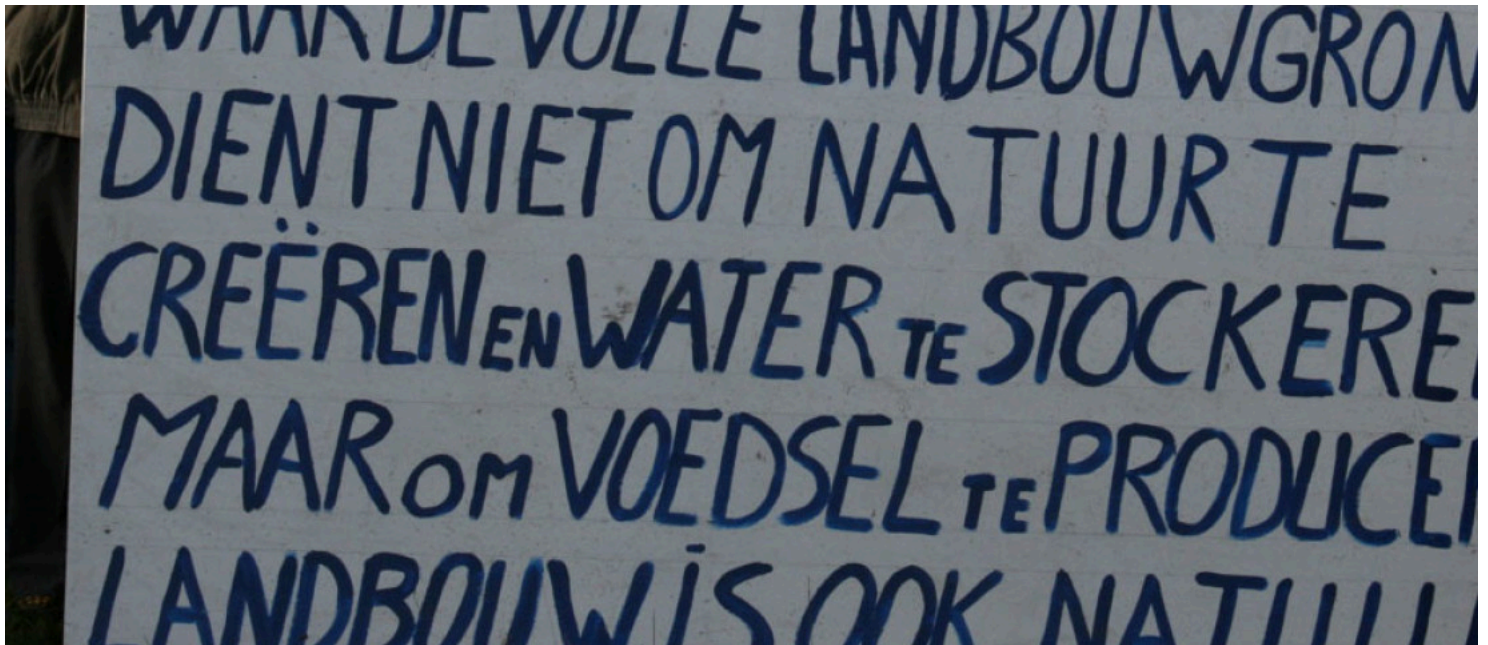 WAARDEVOLLE LANDBOUWGRON
DIENT NIET OM NATUUR TE
CREËREN EN WATER TE STOCKERE
MAAR OM VOEDSEL TE PRODUCE
LANDBOUW IS OOK NATUU